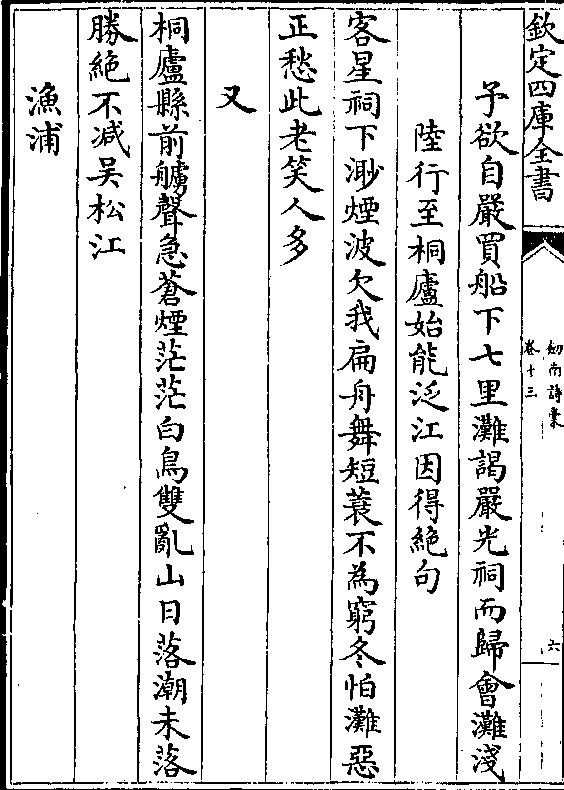 欽定四庫全書
劒南詩稾
卷十三
六
予欲自嚴買船下七里灘謁嚴光祠而歸會灘淺
陸行至桐廬始能泛江因得絶句
客星祠下渺煙波欠我扁舟舞短蓑不為窮冬怕灘惡
正愁此老笑人多
又
桐廬縣前艣聲急蒼煙茫茫白鳥雙亂山日落潮未落
勝絶不减吴松江
漁浦